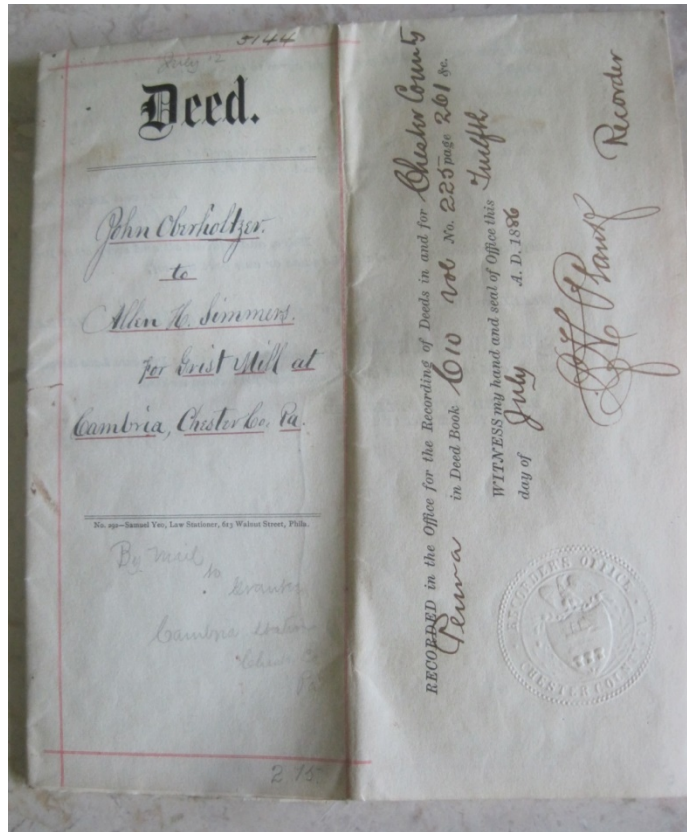 5144
July 12
Deed.
John Oberholtzer.
to
Allen H. Simmers.
for Grist Mill at
Cambria, Chester Co. Pa.
No. 292—Samuel Yeo, Law Stationer, 613 Walnut Street, Phila.
By Mail
to
Grantee
Cambria Station
Chester Co
Pa
2.75
RECORDED in the Office for the Recording of Deeds in and for Chester County
Penna in Deed Book G10 vol No. 225 page 261 &c.
WITNESS my hand and seal of Office this Twelfth
day of July A. D. 1886
Recorder
RECORDER'S OFFICE
CHESTER COUNTY